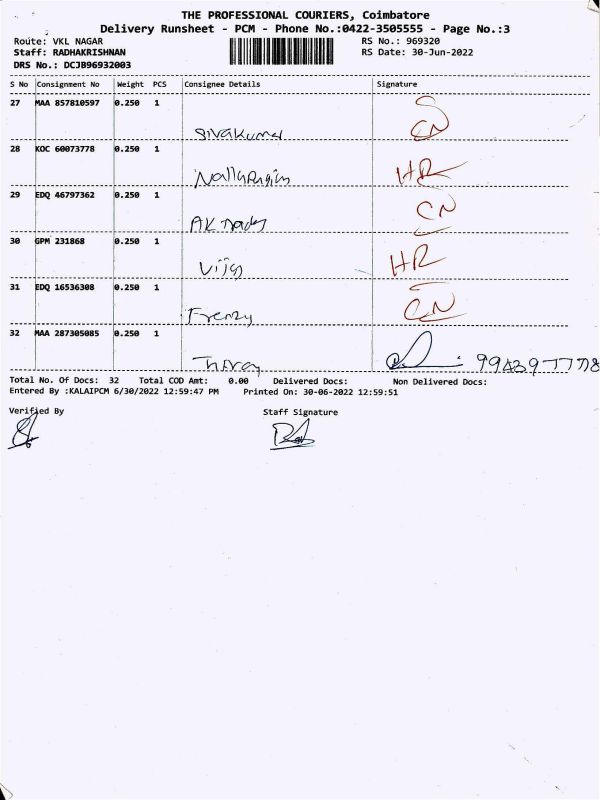 THE PROFESSIONAL COURIERS, Coimbatore
Delivery Runsheet - PCM - Phone No.:0422-3505555 - Page No.:3
Route: VKL NAGAR RS No.: 969320
Staff: RADHAKRISHNAN RS Date: 30-Jun-2022
DRS No.: DCJB96932003
S No Consignment No Weight PCS Consignee Details Signature
27 MAA 857810597 0.250 1
Sivakumar CN
28 KOC 60073778 0.250 1
HR
29 EDQ 46797362 0.250 1
CN
AK
30 GPM 231868 0.250 1
HR
31 EDQ 16536308 0.250 1
CN
Frenzy
32 MAA 287305085 0.250 1
Total No. Of Docs: 32 Total COD Amt: 0.00 Delivered Docs: Non Delivered Docs:
Entered By :KALAIPCM 6/30/2022 12:59:47 PM Printed On: 30-06-2022 12:59:51
Verified By Staff Signature